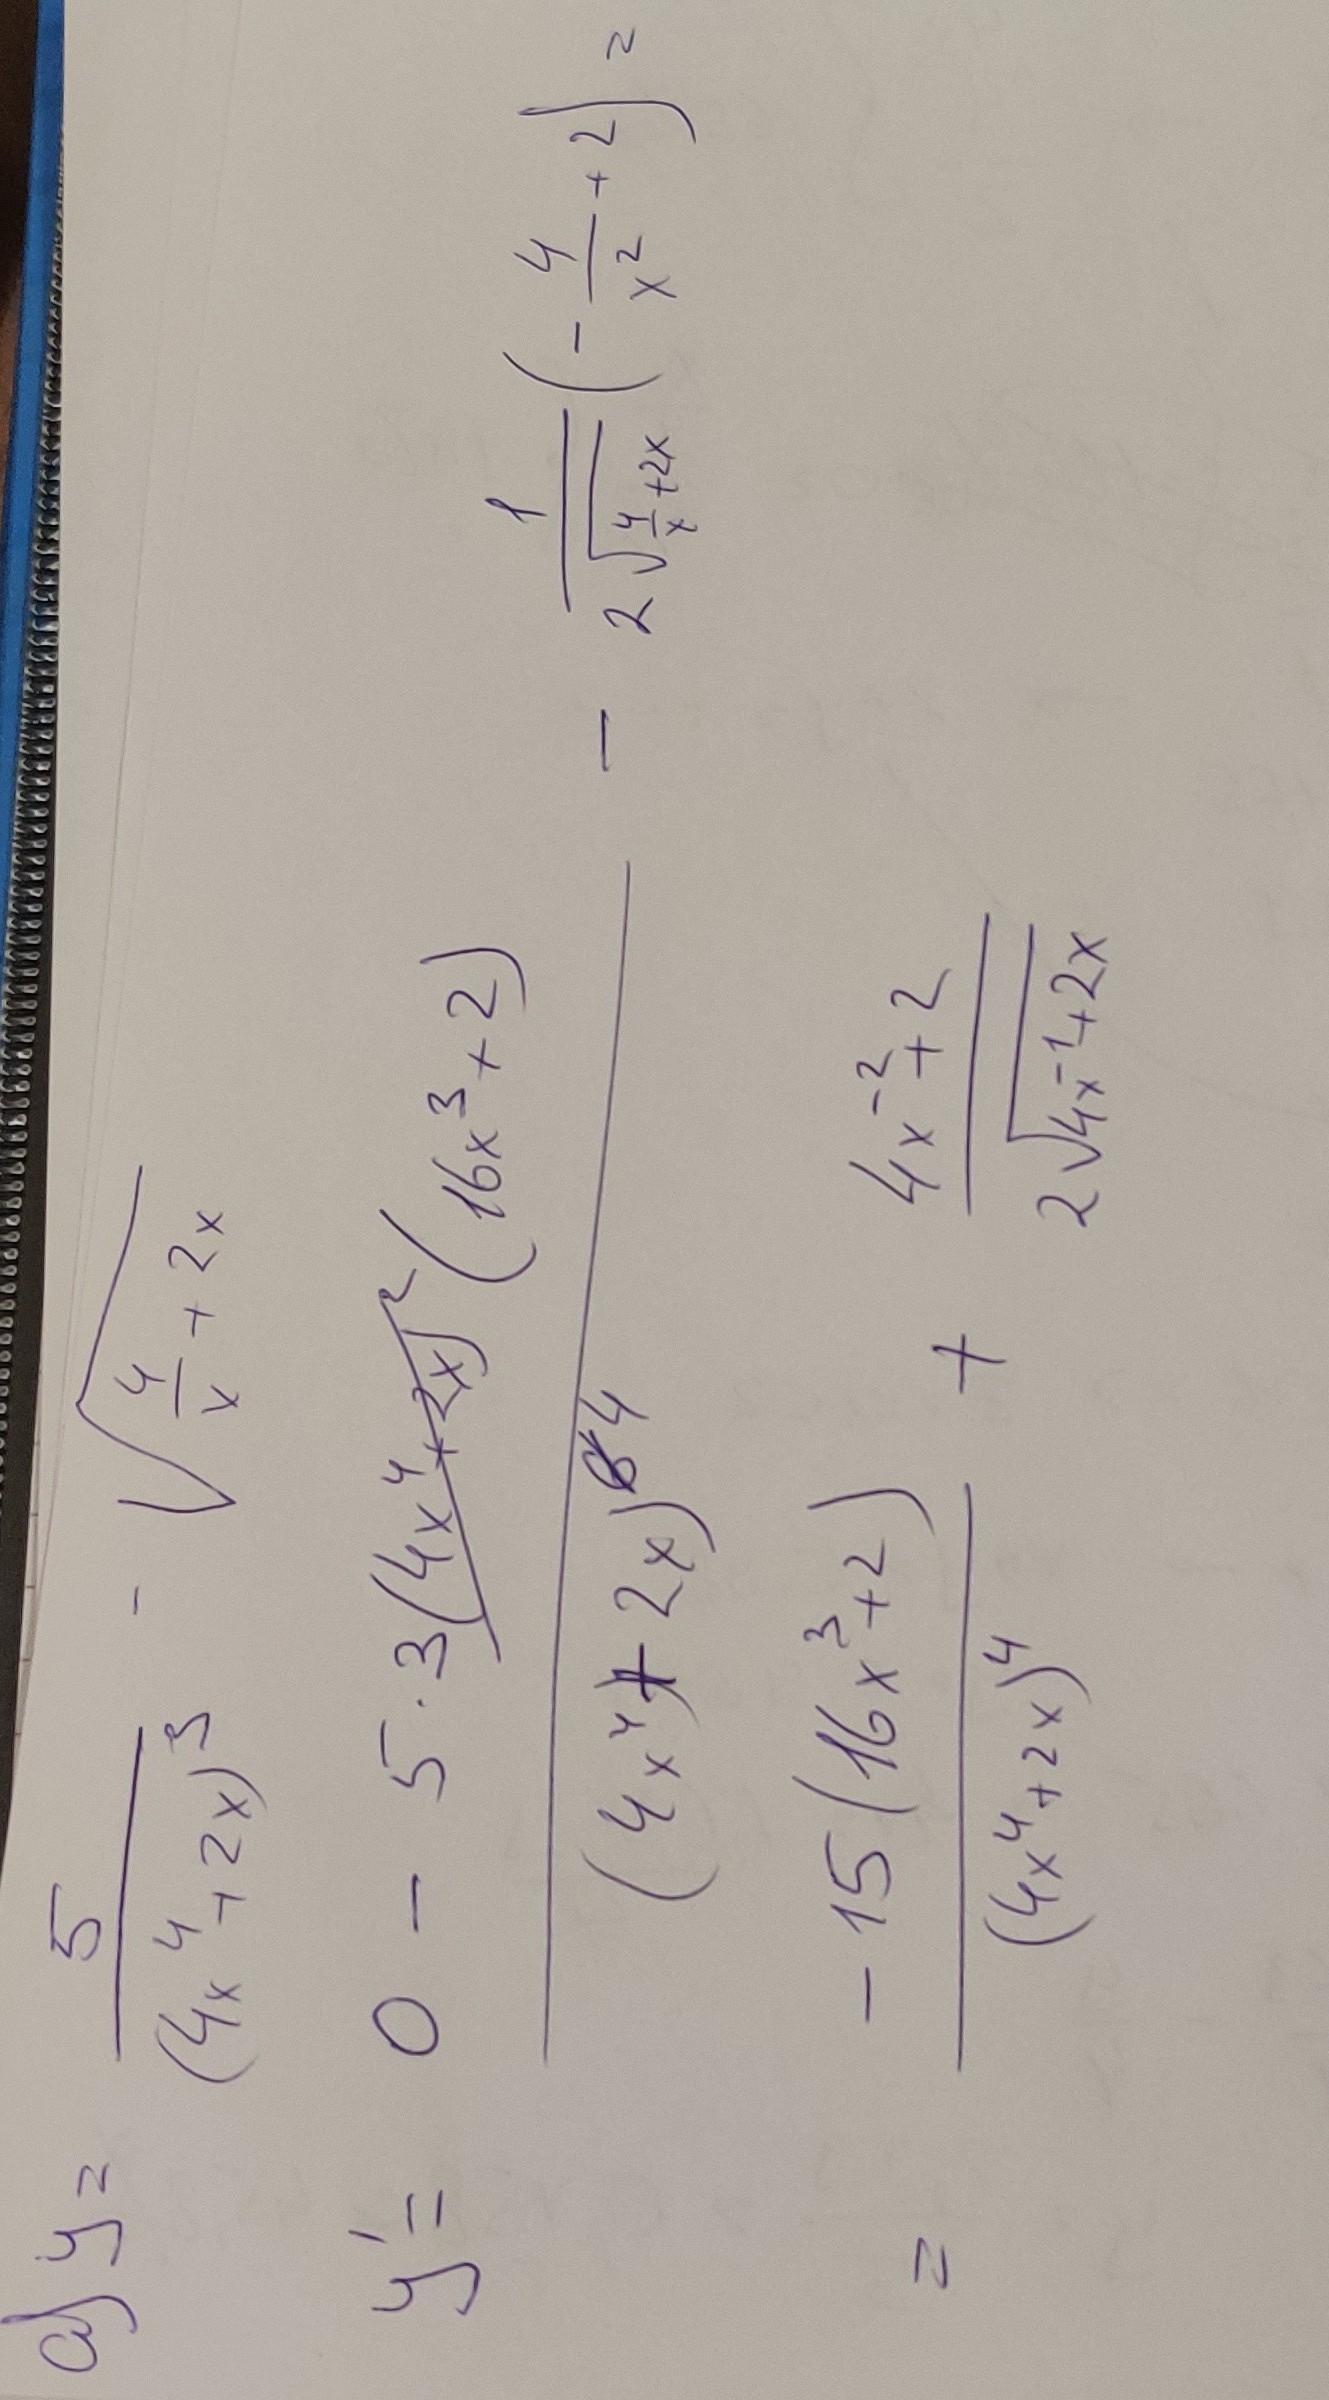 a) y = 5/(4x⁴+2x)³ - √(4/x + 2x)
y' = (0 - 5·3(4x⁴+2x)²(16x³+2))/(4x⁴+2x)⁶ ⁴ - 1/(2√(4/x+2x)) (-4/x² + 2) =
= (-15(16x³+2))/(4x⁴+2x)⁴ + (4x⁻²+2)/(2√(4x⁻¹+2x))